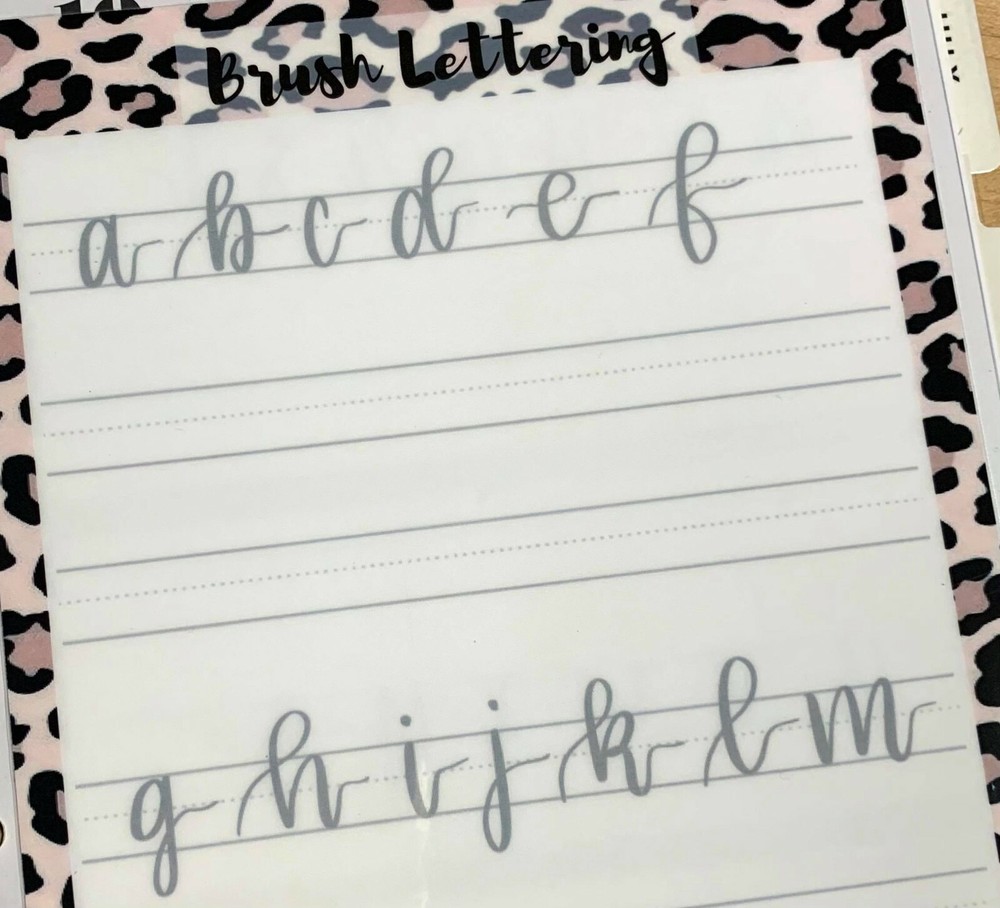 Brush Lettering
a b c d e f
g h i j k l m